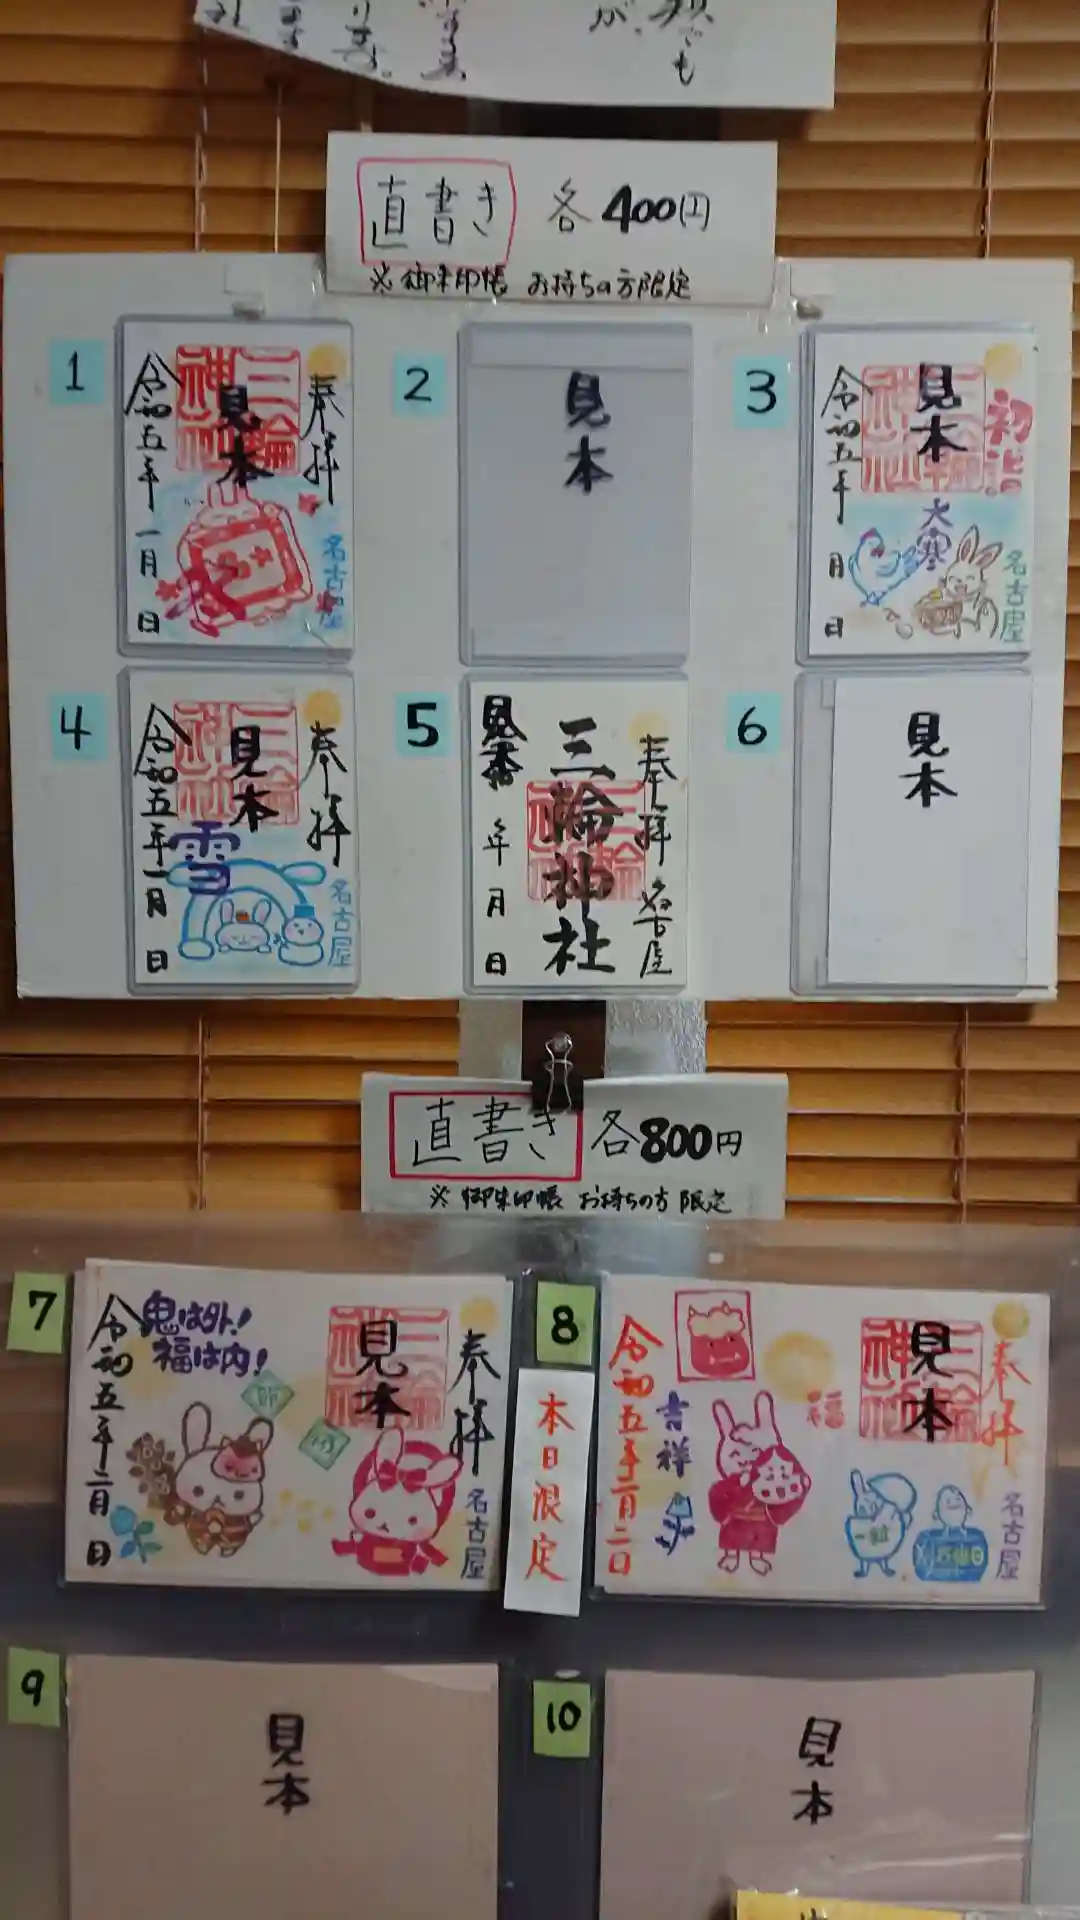 直書き 各400円
※御朱印帳 お持ちの方限定
1
奉拝
三輪神社
見本
令和五年一月 日
名古屋
2
見本
3
初詣
三輪神社
見本
大寒
令和五年 月 日
名古屋
4
奉拝
三輪神社
見本
雪
令和五年一月 日
名古屋
5
奉拝 名古屋
三輪神社
三輪神社
見本
年 月 日
6
見本
直書き 各800円
※御朱印帳 お持ちの方 限定
7
奉拝
三輪神社
見本
鬼は外!
福は内!
令和五年二月 日
名古屋
8
本日限定
奉拝
三輪神社
見本
福
吉祥
令和五年二月二日
一粒
名古屋
9
見本
10
見本